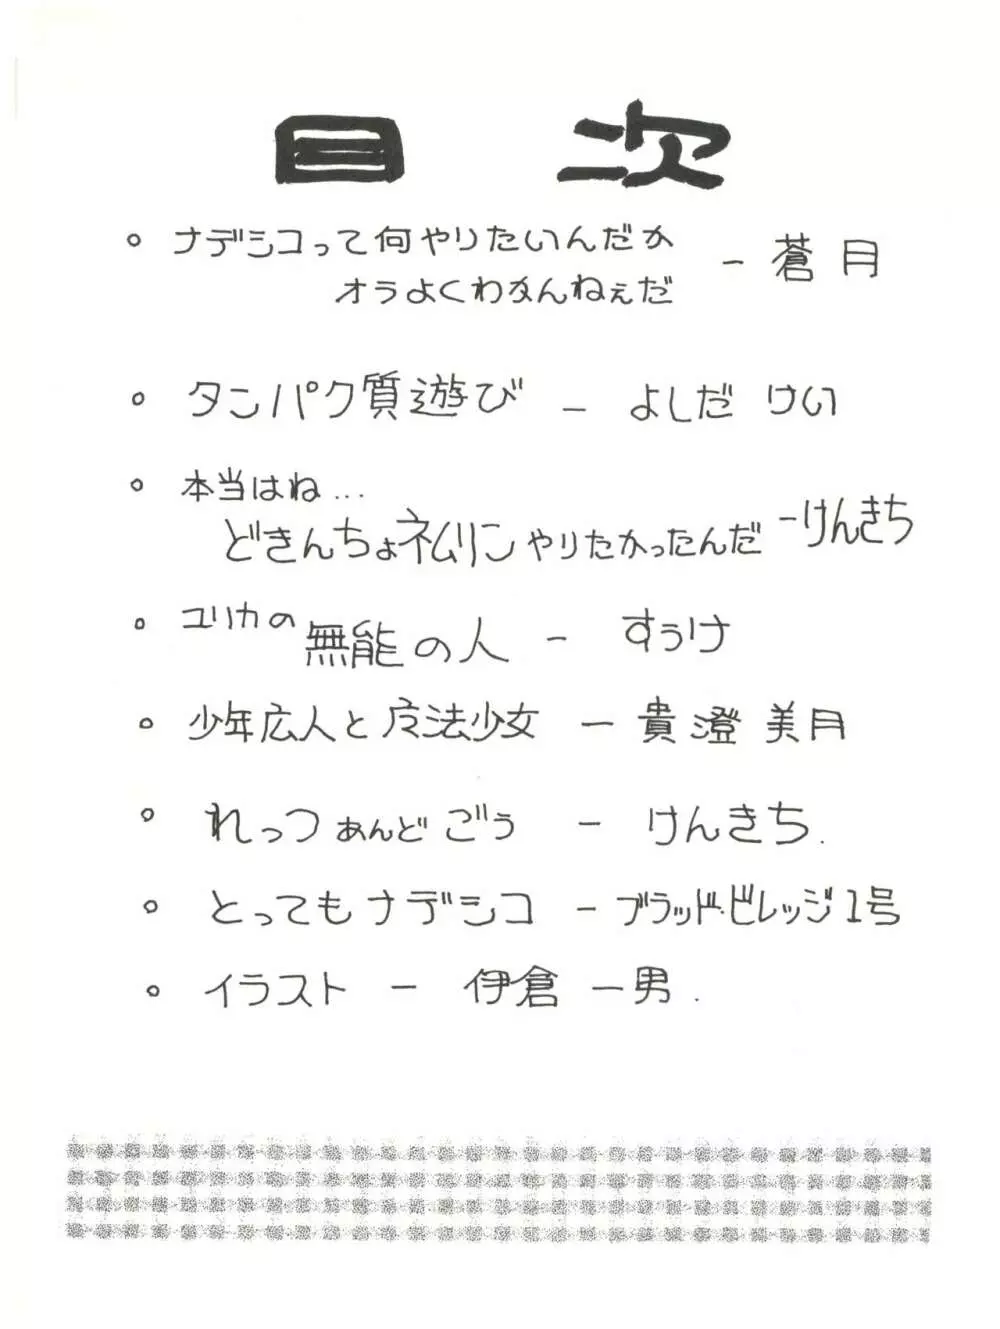 目次
。ナデシコって何やりたいんだか
オラよくわかんねぇだ - 蒼月
。タンパク質遊び - よしだ けい
。本当はね…
どきんちょネムリンやりたかったんだ - けんきち
。ユリカの無能の人 - すぅけ
。少年広人と魔法少女 - 貴澄 美月
。れっつぁんどごぅ - けんきち.
。とってもナデシコ - ブラッド・ビレッジ1号
。イラスト - 伊倉 一男.